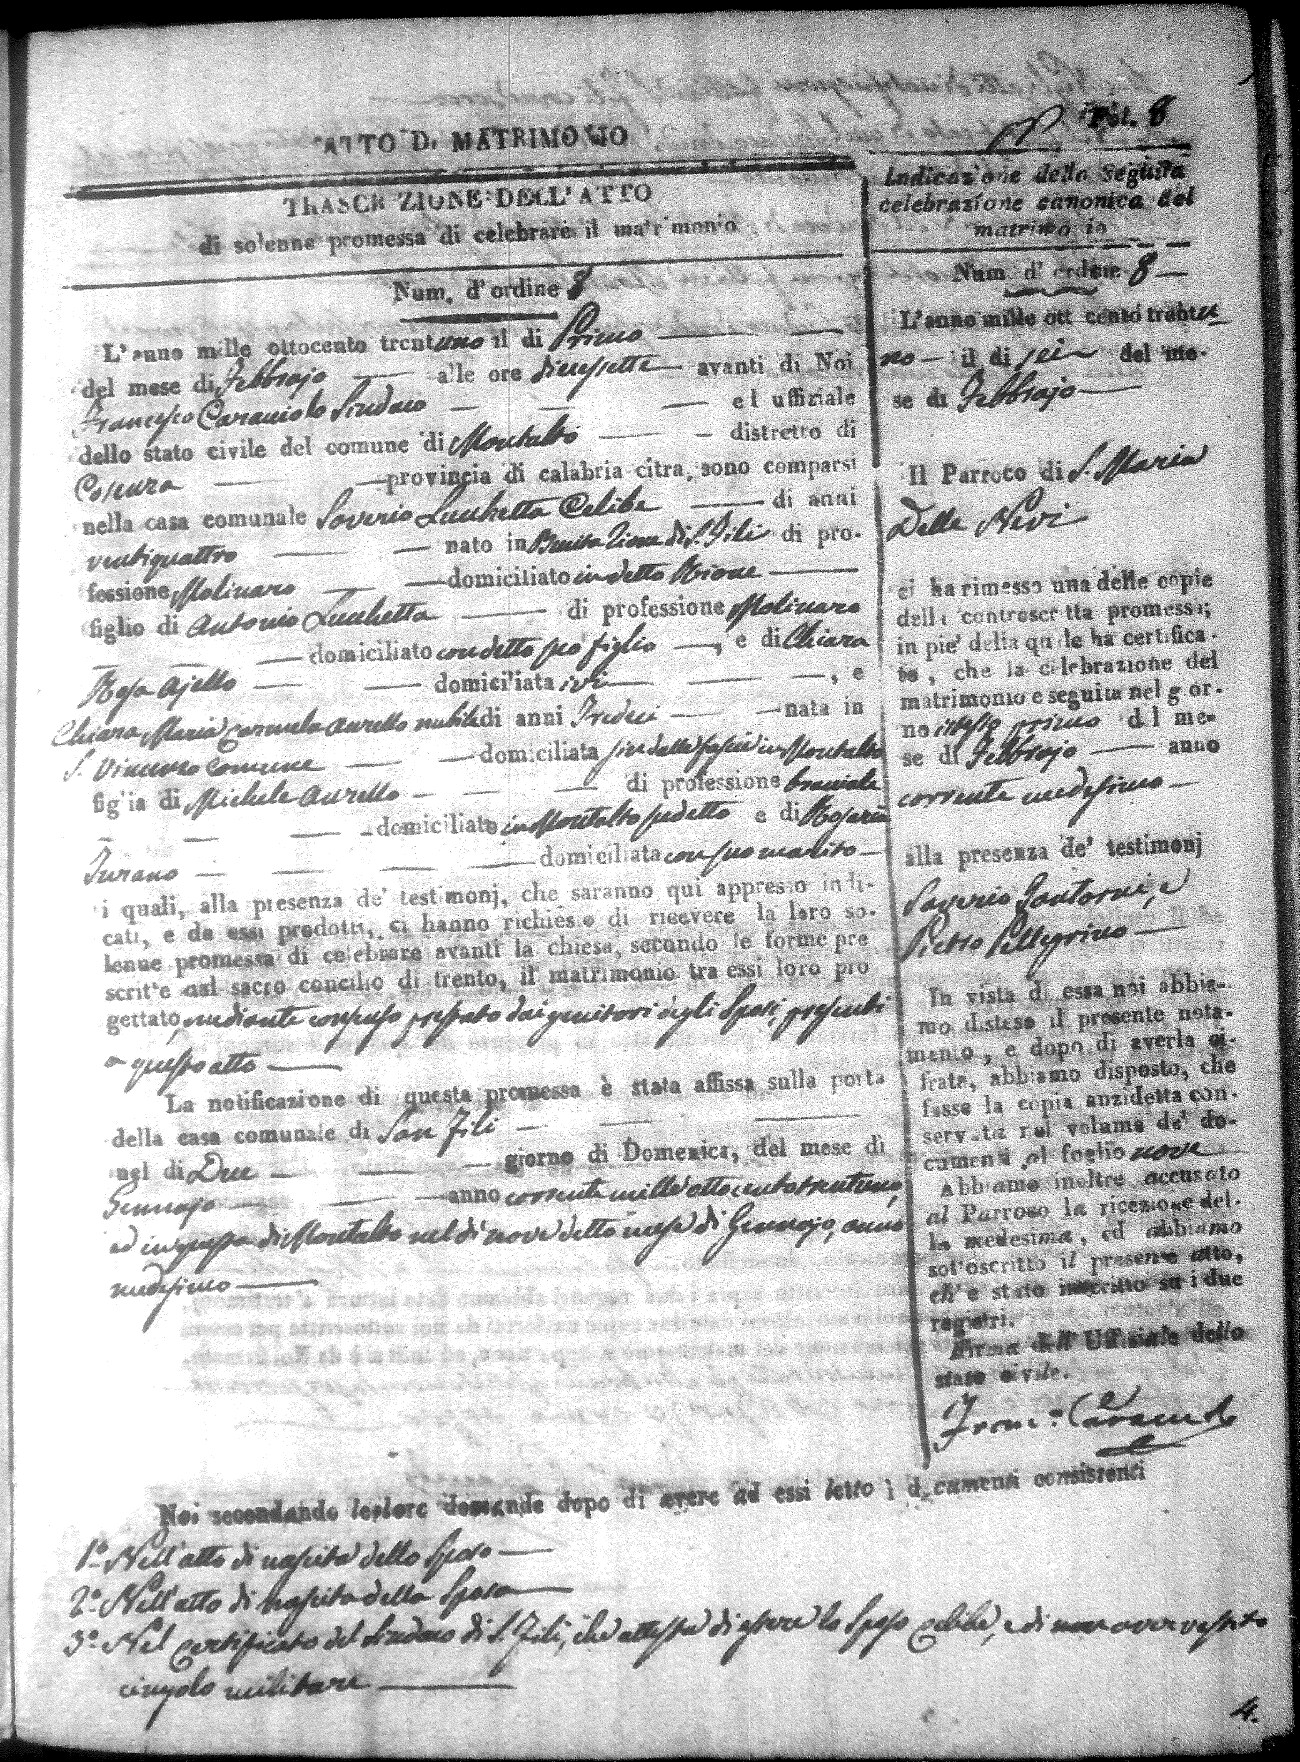 Fol. 8
ATTO DI MATRIMONIO
TRASCRIZIONE DELL'ATTO
di solenne promessa di celebrare il matrimonio
Num. d'ordine 8
L'anno mille ottocento trentuno il di Primo
del mese di Febbrajo alle ore diecisette avanti di Noi
Francesco Caracciolo Sindaco ed uffiziale
dello stato civile del comune di Montalto distretto di
Cosenza provincia di calabria citra, sono comparsi
nella casa comunale Soverio Lucchetta Celibe di anni
ventiquattro nato in di S. Fili di pro-
fessione Molinaro domiciliato in detto Rione
figlio di Antonio Lucchetta di professione Molinaro
domiciliato con detto suo figlio, e di Chiara
Rosa Ajello domiciliata ivi, e
Chiara Maria Carmela Aurello nubile di anni Tredici nata in
S. Vincenzo Comune domiciliata sin dalle fascie in Montalto
figlia di Michele Aurello di professione bracciale
domiciliato in Montalto sudetto e di Rosaria
Turano domiciliata con suo marito
i quali, alla presenza de' testimonj, che saranno qui appresso indi-
cati, e da essi prodotti, ci hanno richiesto di ricevere la loro so-
lenne promessa di celebrare avanti la chiesa, secondo le forme pre
scritte nal sacro concilio di trento, il matrimonio tra essi loro pro
gettato mediante consenso prestato dai genitori degli Sposi, presenti
a questo atto
La notificazione di questa promessa è stata affissa sulla porta
della casa comunale di San Fili
nel di Due giorno di Domenica, del mese di
Gennajo anno corrente mille ottocentotrentuno,
ed in questa di Montalto nel di nove detto mese di Gennajo, anno
medesimo
Indicazione della Seguita
celebrazione canonica del
matrimonio
Num. d' ordine 8
L'anno mille ott cento trentu
no il di sei del me-
se di Febbrajo
Il Parroco di S. Maria
Delle Nevi
ci ha rimesso una delle copie
della controscritta promessa;
in pie' della quale ha certifica-
to, che la celebrazione del
matrimonio e seguita nel gior-
no istesso primo del me-
se di Febbrajo anno
corrente medesimo
alla presenza de' testimonj
Saverio Santorni, e
Pietro Pellegrino
In vista di essa noi abbia-
mo disteso il presente nota-
mento, e dopo di averla ci-
frata, abbiamo disposto, che
fosse la copia anzidetta con-
servata nel volume de' do-
cumenti al foglio nove
Abbiamo inoltre accusato
al Parroco la ricezione del-
la medesima, ed abbiamo
sottoscritto il presente atto,
ch'e stato inscritto su i due
registri.
Firma dell' Uffiziale dello
stato civile.
Franc.o Caracciolo
Noi secondando le loro domande dopo di avere ad essi letto i documenti consistenti
1.o Nell'atto di nascita dello Sposo
2.o Nell'atto di nascita della Sposa
3.o Nel certificato del Sindaco di S. Fili, che attesta di essere lo Sposo Celibe, e di non aver vestito
cingolo militare
4.